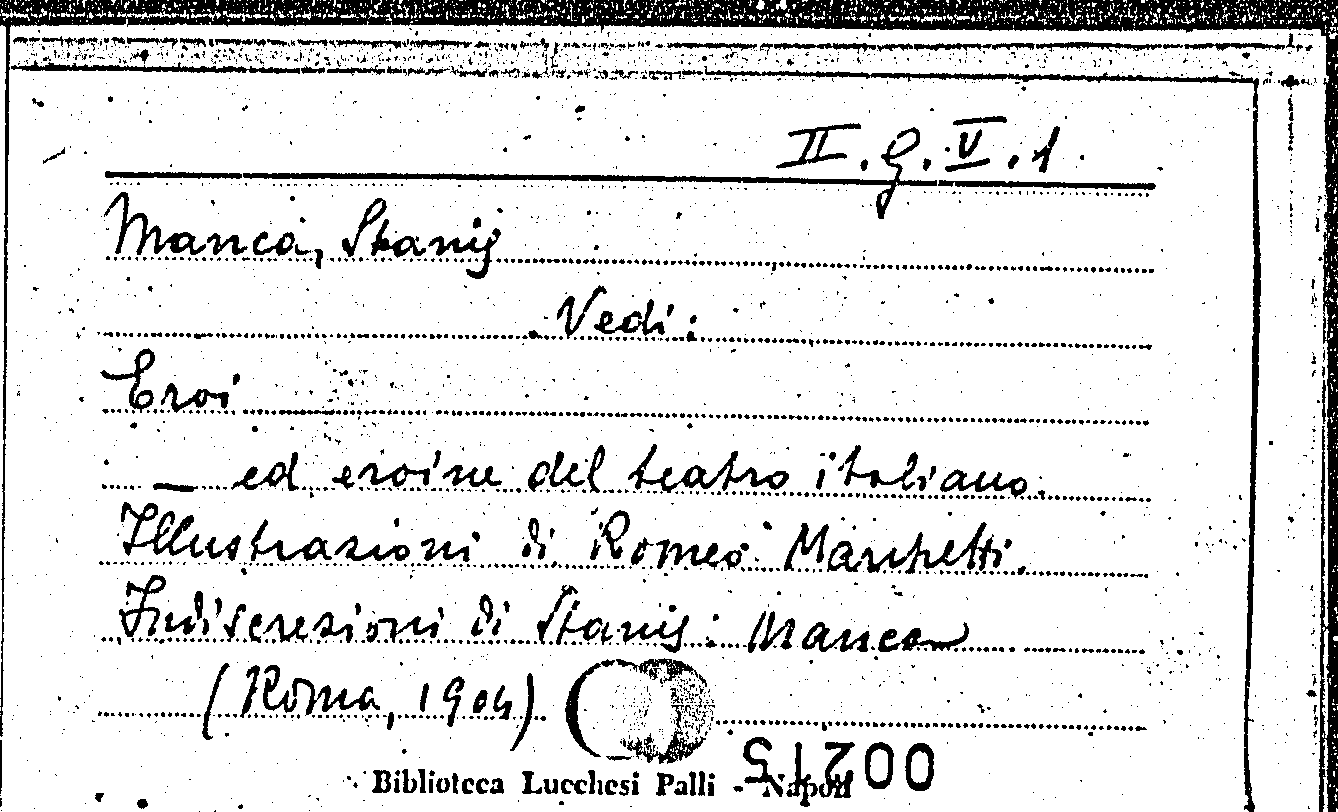 II.G.V.1
Manca, Stanis
Vedi:
Eroi
— ed eroine del teatro italiano.
Illustrazioni di Romeo Marchetti.
Indiscrezioni di Stanis: Manca
(Roma, 1904).
00215
Biblioteca Lucchesi Palli - Napoli